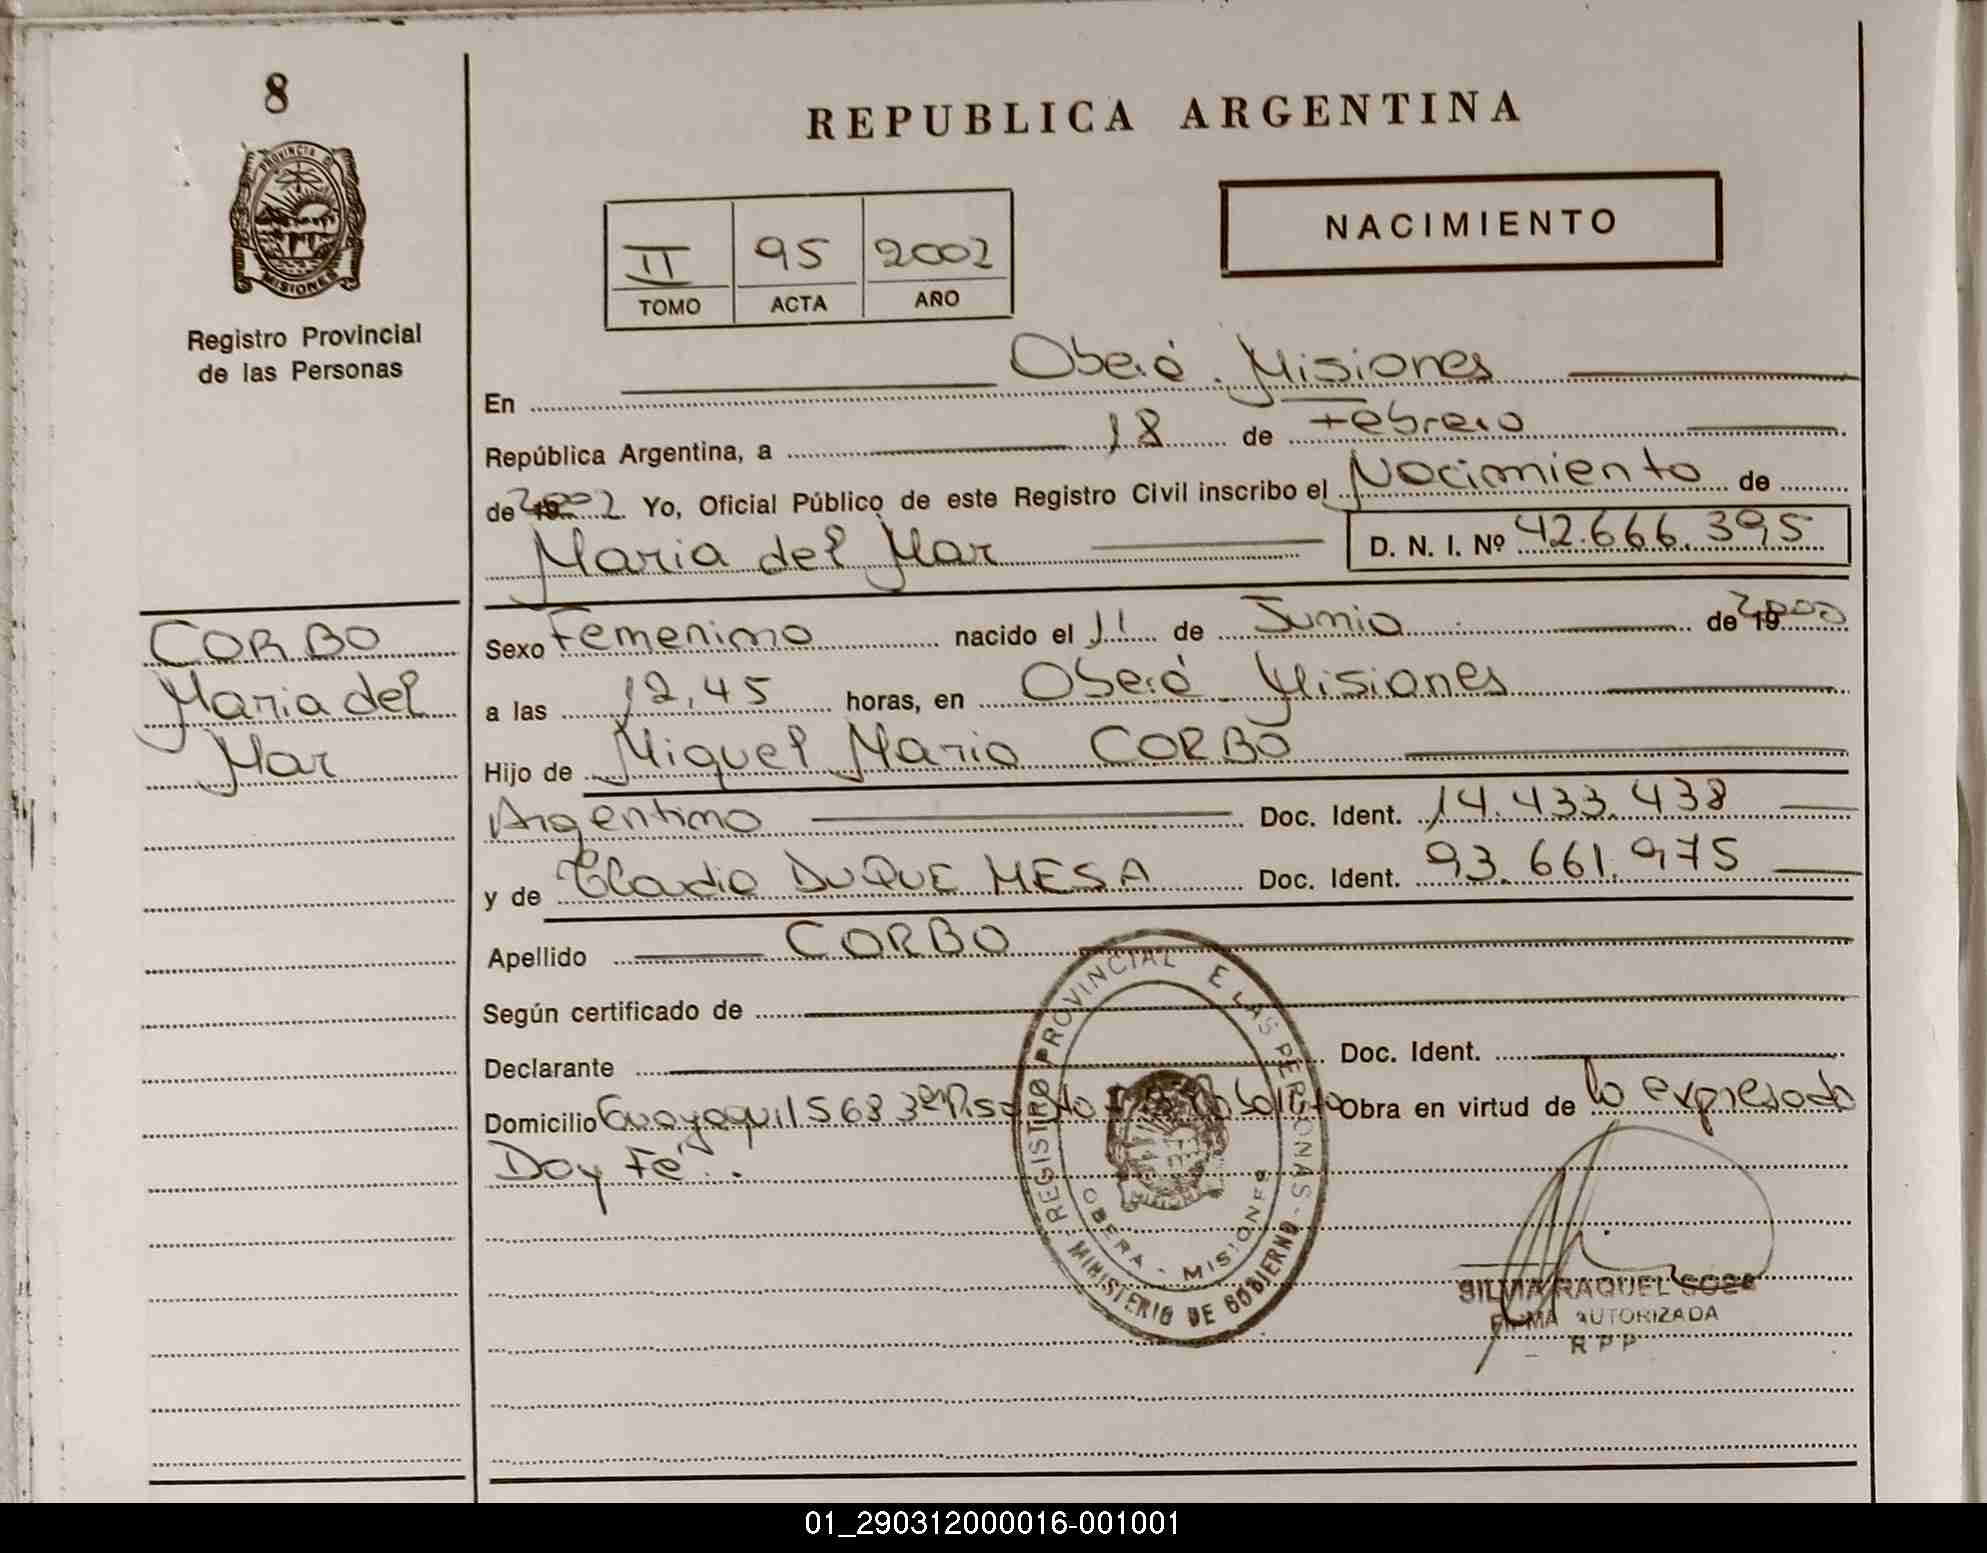 8
PROVINCIA DE
MISIONES
Registro Provincial
de las Personas
REPUBLICA ARGENTINA
NACIMIENTO
II 95 2002
TOMO ACTA AÑO
En Oberá. Misiones
República Argentina, a 18 de Febrero
de 2002 Yo, Oficial Público de este Registro Civil inscribo el Nacimiento de
Maria del Mar D. N. I. Nº 42.666.395
CORBO
Maria del
Mar
Sexo Femenino nacido el 11 de Junio de 2000
a las 12,45 horas, en Oberá Misiones
Hijo de Miguel Mario CORBO
Argentino Doc. Ident. 14.433.438
y de Claudia DUQUE MESA Doc. Ident. 93.661.975
Apellido CORBO
Según certificado de
Declarante Doc. Ident.
Domicilio Guayaquil 568 3er Obra en virtud de lo expresado
Doy Fé.
REGISTRO PROVINCIAL E LAS PERSONAS
OBERA - MISIONES
MINISTERIO DE GOBIERNO
SILVIA RAQUEL SOSA
FIRMA AUTORIZADA
R P P
01_290312000016-001001